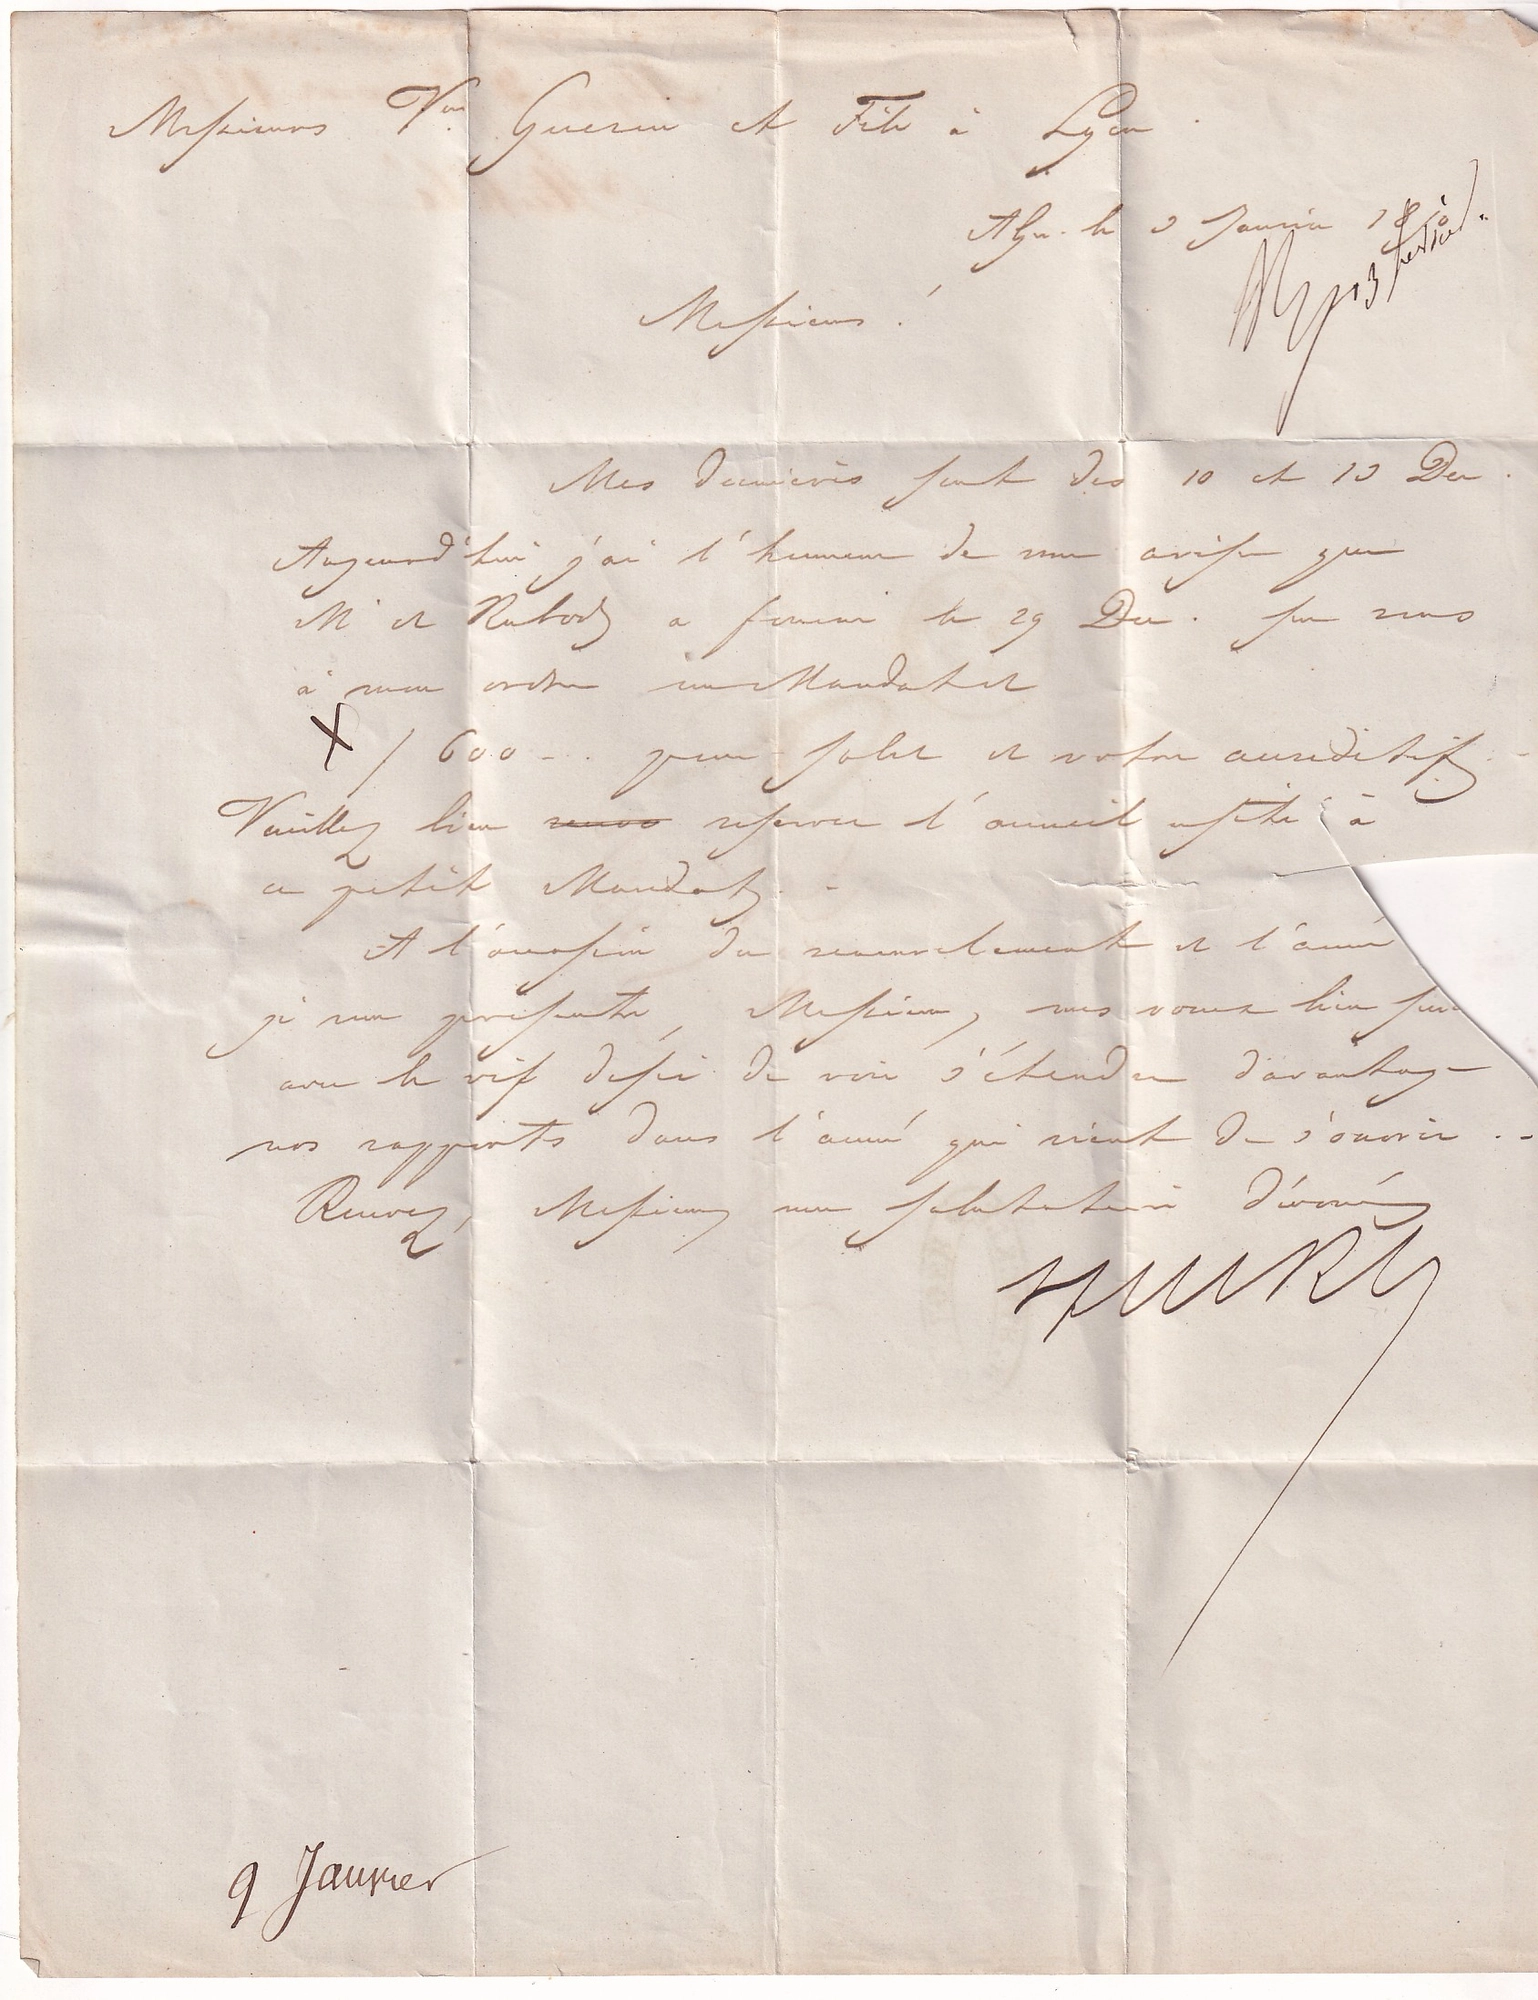 Messieurs Vve Guerin et Fils à Lyon.
Alger le 3 Janvier 1850
Messieurs!
Mes dernières sont des 10 et 13 Dec.
Aujourd'hui j'ai l'honneur de vous aviser que
M de a fourni le 29 Dec. sur vous
à mon ordre un Mandat de
X f 600 -.. pour solde de votre accreditif. -
Veuillez bien reserver l'accueil usité à
ce petit Mandat. -
A l'occasion du renouvelement de l'année
je vous présente, Messieurs, mes voeux bien
avec le vif désir de voir s'étendre davantage
nos rapports dans l'année qui vient de s'ouvrir. -
Recevez, Messieurs, mes salutations dévouées
9 Janvier